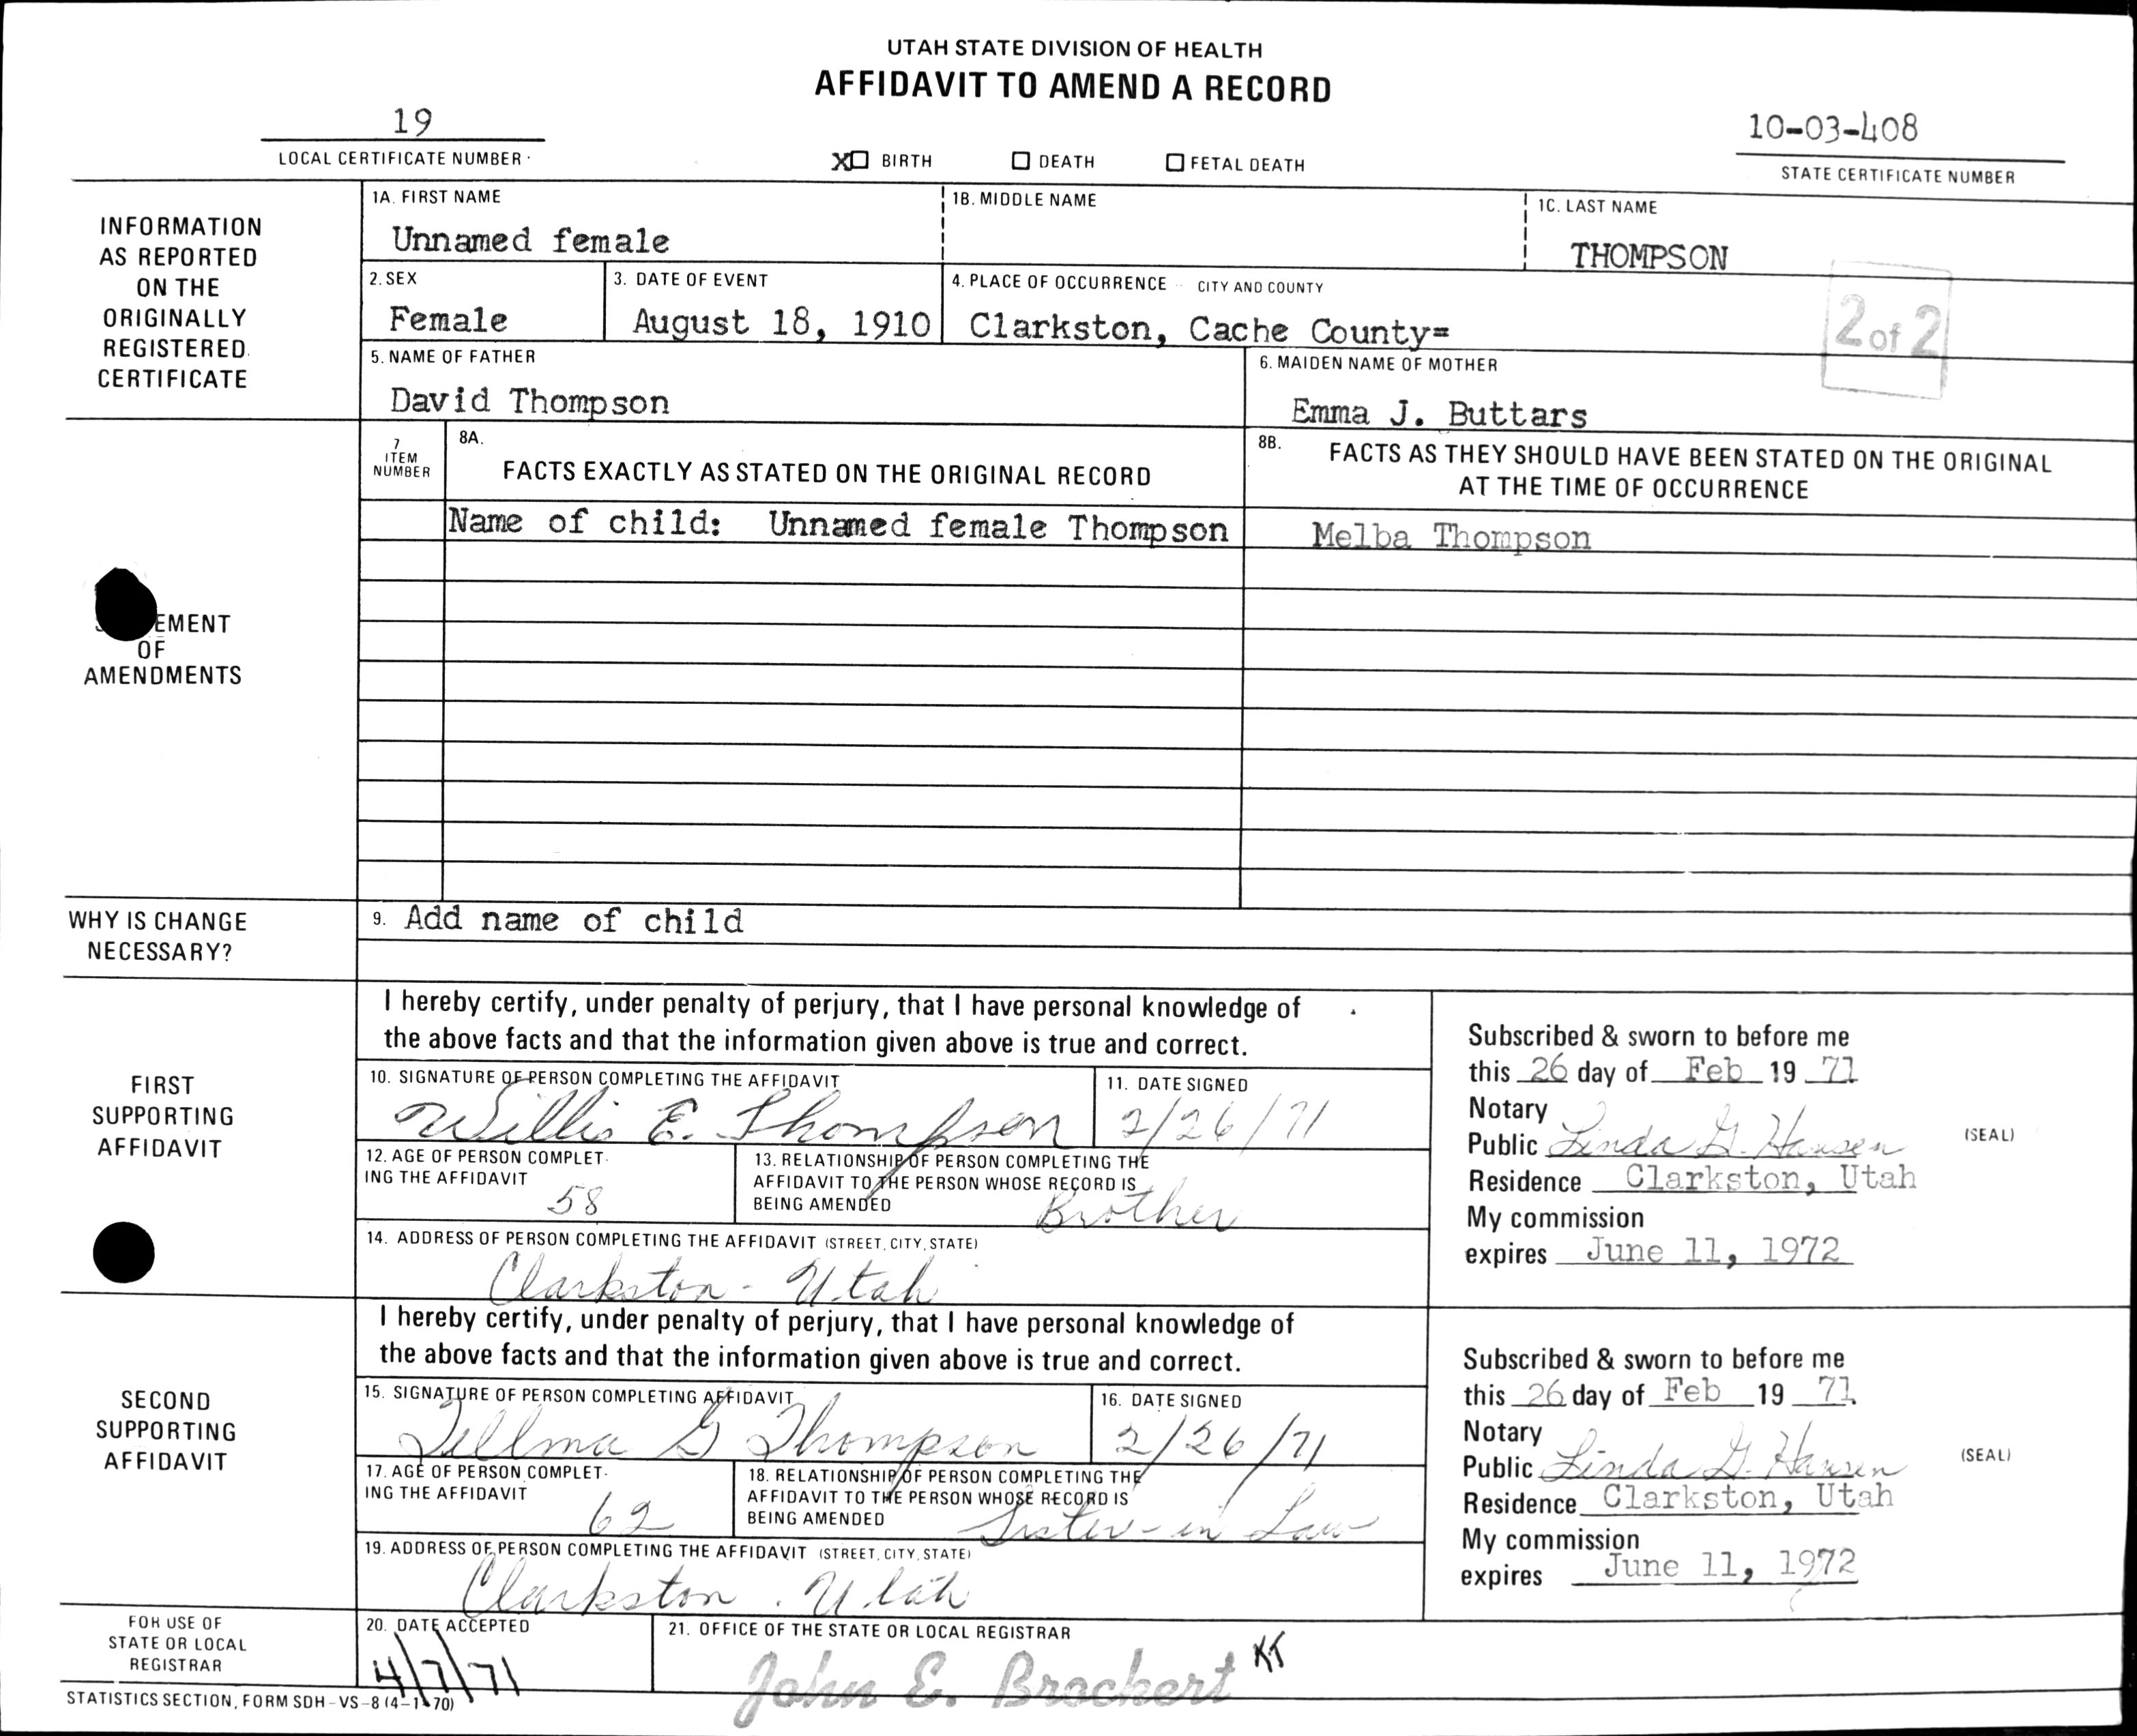 UTAH STATE DIVISION OF HEALTH
AFFIDAVIT TO AMEND A RECORD
19
LOCAL CERTIFICATE NUMBER
X BIRTH
DEATH
FETAL DEATH
10-03-408
STATE CERTIFICATE NUMBER
INFORMATION
AS REPORTED
ON THE
ORIGINALLY
REGISTERED
CERTIFICATE
1A. FIRST NAME
Unnamed female
1B. MIDDLE NAME
1C. LAST NAME
THOMPSON
2. SEX
Female
3. DATE OF EVENT
August 18, 1910
4. PLACE OF OCCURRENCE CITY AND COUNTY
Clarkston, Cache County=
2 of 2
5. NAME OF FATHER
David Thompson
6. MAIDEN NAME OF MOTHER
Emma J. Buttars
EMENT
OF
AMENDMENTS
7
ITEM
NUMBER
8A.
FACTS EXACTLY AS STATED ON THE ORIGINAL RECORD
8B.
FACTS AS THEY SHOULD HAVE BEEN STATED ON THE ORIGINAL
AT THE TIME OF OCCURRENCE
Name of child: Unnamed female Thompson
Melba Thompson
WHY IS CHANGE
NECESSARY?
9. Add name of child
FIRST
SUPPORTING
AFFIDAVIT
I hereby certify, under penalty of perjury, that I have personal knowledge of
the above facts and that the information given above is true and correct.
10. SIGNATURE OF PERSON COMPLETING THE AFFIDAVIT
Willis E. Thompson
11. DATE SIGNED
2/26/71
12. AGE OF PERSON COMPLET-
ING THE AFFIDAVIT
58
13. RELATIONSHIP OF PERSON COMPLETING THE
AFFIDAVIT TO THE PERSON WHOSE RECORD IS
BEING AMENDED
Brother
14. ADDRESS OF PERSON COMPLETING THE AFFIDAVIT (STREET, CITY, STATE)
Clarkston - Utah
Subscribed & sworn to before me
this 26 day of Feb 19 71
Notary
Public Linda G. Hansen
(SEAL)
Residence Clarkston, Utah
My commission
expires June 11, 1972
SECOND
SUPPORTING
AFFIDAVIT
I hereby certify, under penalty of perjury, that I have personal knowledge of
the above facts and that the information given above is true and correct.
15. SIGNATURE OF PERSON COMPLETING AFFIDAVIT
G Thompson
16. DATE SIGNED
2/26/71
17. AGE OF PERSON COMPLET-
ING THE AFFIDAVIT
62
18. RELATIONSHIP OF PERSON COMPLETING THE
AFFIDAVIT TO THE PERSON WHOSE RECORD IS
BEING AMENDED
Sister-in Law
19. ADDRESS OF PERSON COMPLETING THE AFFIDAVIT (STREET, CITY, STATE)
Clarkston . Utah
Subscribed & sworn to before me
this 26 day of Feb 19 71
Notary
Public Linda G. Hansen
(SEAL)
Residence Clarkston, Utah
My commission
expires June 11, 1972
FOR USE OF
STATE OR LOCAL
REGISTRAR
20. DATE ACCEPTED
4/7/71
21. OFFICE OF THE STATE OR LOCAL REGISTRAR
John E. Brockert KT
STATISTICS SECTION, FORM SDH-VS-8 (4-1-70)